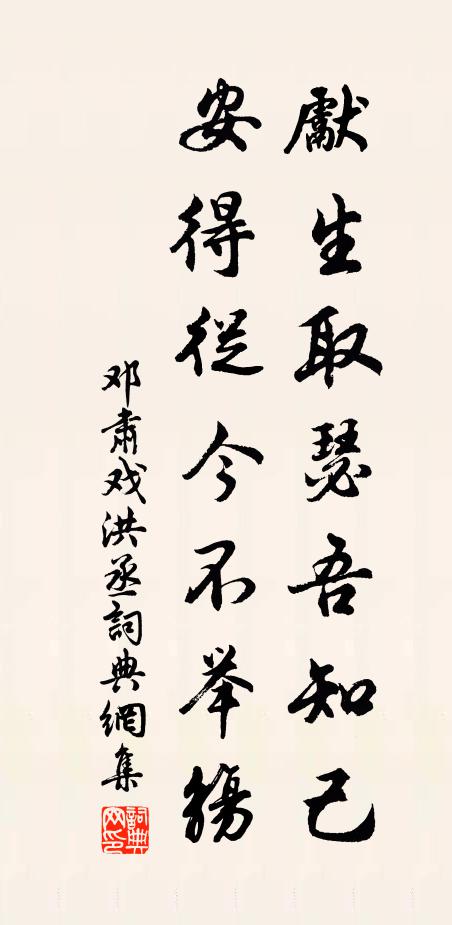 獻生取瑟吾知己
安得從今不举觴
邓肅戏洪丞詞典網集
詞典网印